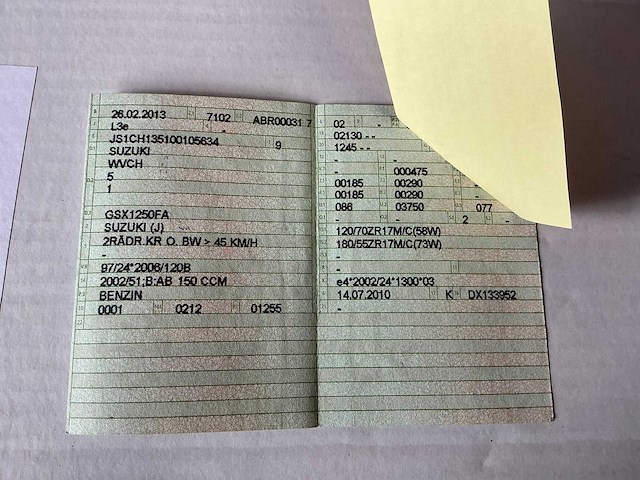 26.02.2013 7102 ABR00031 7
L3e -
JS1CH135100105634 9
SUZUKI
WVCH
5
1
GSX1250FA
SUZUKI (J) -
2RÄDR.KR O. BW > 45 KM/H
-
97/24*2006/120B
2002/51;B:AB 150 CCM
BENZIN
0001 0212 01255
02 -
02130 - -
1245 - -
- -
- 000475
00185 00290
00185 00290
086 03750 077
- - 2 -
120/70ZR17M/C(58W)
180/55ZR17M/C(73W)
-
-
e4*2002/24*1300*03
14.07.2010 K DX133952
-